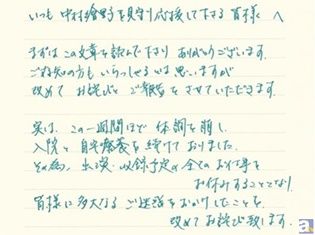 いつも中村繪里子を見守り応援して下さる皆様へ
まずはこの文章を読んで下さりありがとうございます。
ご存知の方もいらっしゃるとは思いますが
改めてお詫びとご報告をさせていただきます。
実は、この一週間ほど体調を崩し、
入院と自宅療養を続けておりました。
その為、出演・収録予定の全てのお仕事を
お休みすることとなり
皆様に多大なるご迷惑をおかけしたことを
改めてお詫び致します。